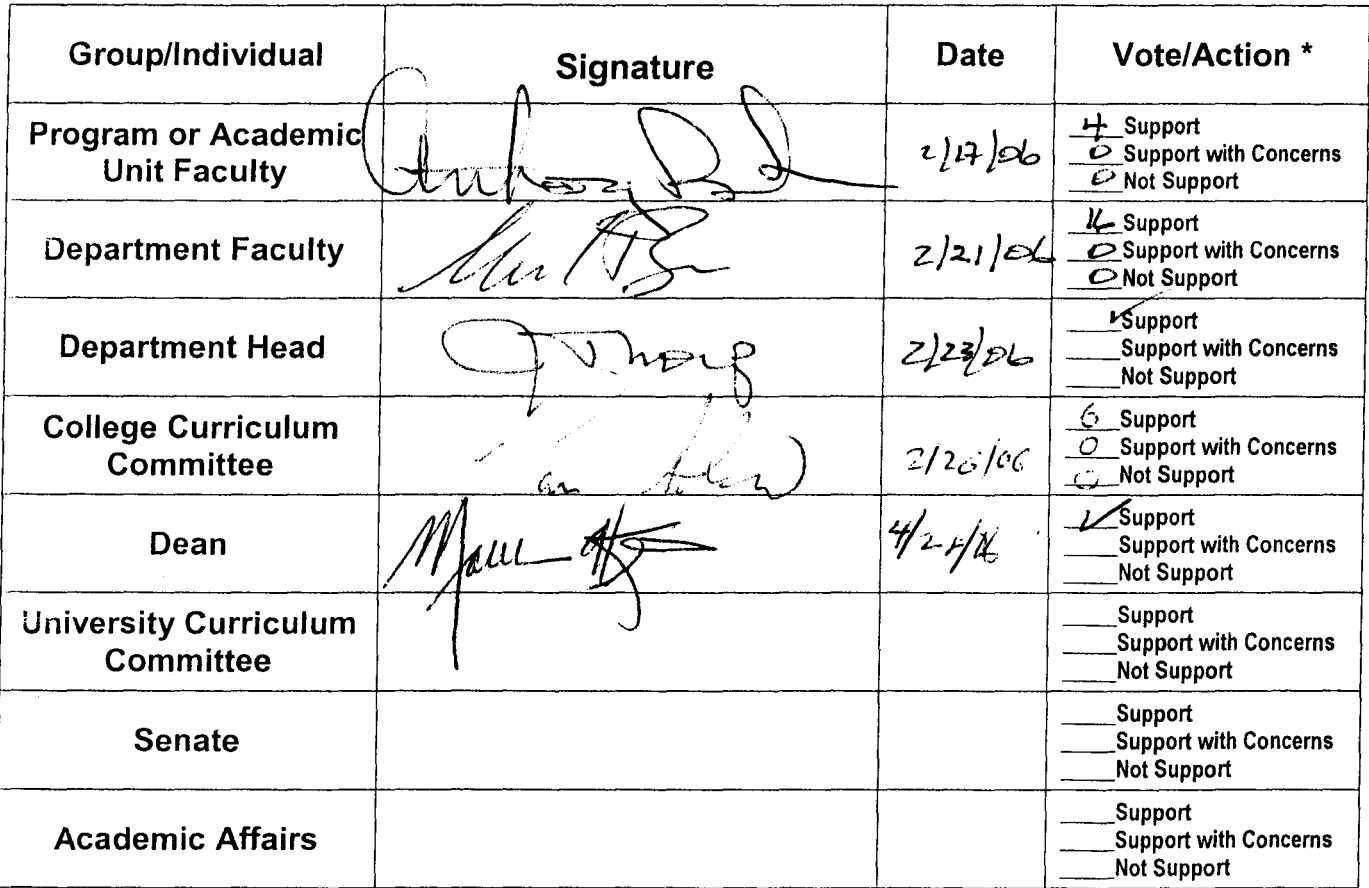 Group/Individual Signature Date Vote/Action *
Program or Academic Unit Faculty 2/17/06
4 Support
0 Support with Concerns
0 Not Support
Department Faculty 2/21/06
Support
0 Support with Concerns
0 Not Support
Department Head 2/23/06
✓ Support
Support with Concerns
Not Support
College Curriculum Committee
6 Support
0 Support with Concerns
0 Not Support
Dean
✓ Support
Support with Concerns
Not Support
University Curriculum Committee
Support
Support with Concerns
Not Support
Senate
Support
Support with Concerns
Not Support
Academic Affairs
Support
Support with Concerns
Not Support